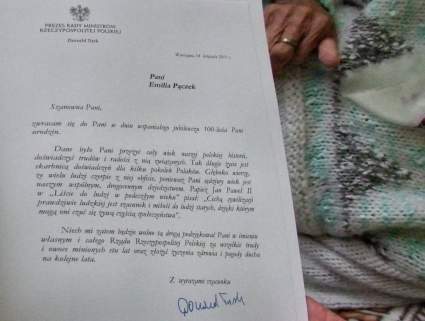 PREZES RADY MINISTRÓW
RZECZYPOSPOLITEJ POLSKIEJ
Donald Tusk
Warszawa, 14 listopada 2011 r.
Pani
Emilia Pączek
Szanowna Pani,
zwracam się do Pani w dniu wspaniałego jubileuszu 100-lecia Pani
urodzin.
Dane było Pani przeżyć cały wiek naszej polskiej historii,
doświadczyć trudów i radości z nią związanych. Tak długie życie jest
skarbnicą doświadczeń dla kilku pokoleń Polaków. Głęboko wierzę,
że wielu ludzi czerpie z niej obficie, ponieważ Pani sędziwy wiek jest
naszym wspólnym, drogocennym dziedzictwem. Papież Jan Paweł II
w "Liście do ludzi w podeszłym wieku" pisał: "Cechą cywilizacji
prawdziwie ludzkiej jest szacunek i miłość do ludzi starych, dzięki którym
mogą oni czuć się żywą częścią społeczeństwa".
Niech mi zatem będzie wolno tą drogą podziękować Pani w imieniu
własnym i całego Rządu Rzeczypospolitej Polskiej za wszystkie trudy
i owoce minionych stu lat oraz złożyć życzenia zdrowia i pogody ducha
na kolejne lata.
Z wyrazami szacunku
Donald Tusk